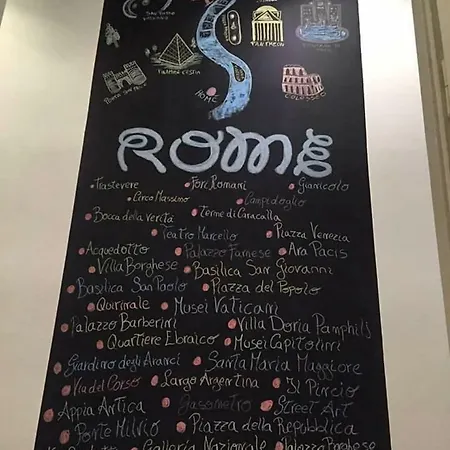 PANTHEON
PIRAMIDE CESTIA
HOME
COLOSSEO
ROME
Trastevere • Fori Romani • Gianicolo
• Circo Massimo • Campidoglio
• Bocca della Verità • Terme di Caracalla
• Teatro Marcello • Piazza Venezia
• Acquedotto • Palazzo Farnese • Ara Pacis
• Villa Borghese • Basilica San Giovanni
• Basilica San Paolo • Piazza del Popolo
• Quirinale • Musei Vaticani
• Palazzo Barberini • Villa Doria Pamphilj
• Quartiere Ebraico • Musei Capitolini
• Giardino degli Aranci • Santa Maria Maggiore
• Via del Corso • Largo Argentina • Il Pincio
• Appia Antica • Gasometro • Street Art
• Ponte Milvio • Piazza della Repubblica
• Galleria Nazionale • Palazzo Borghese